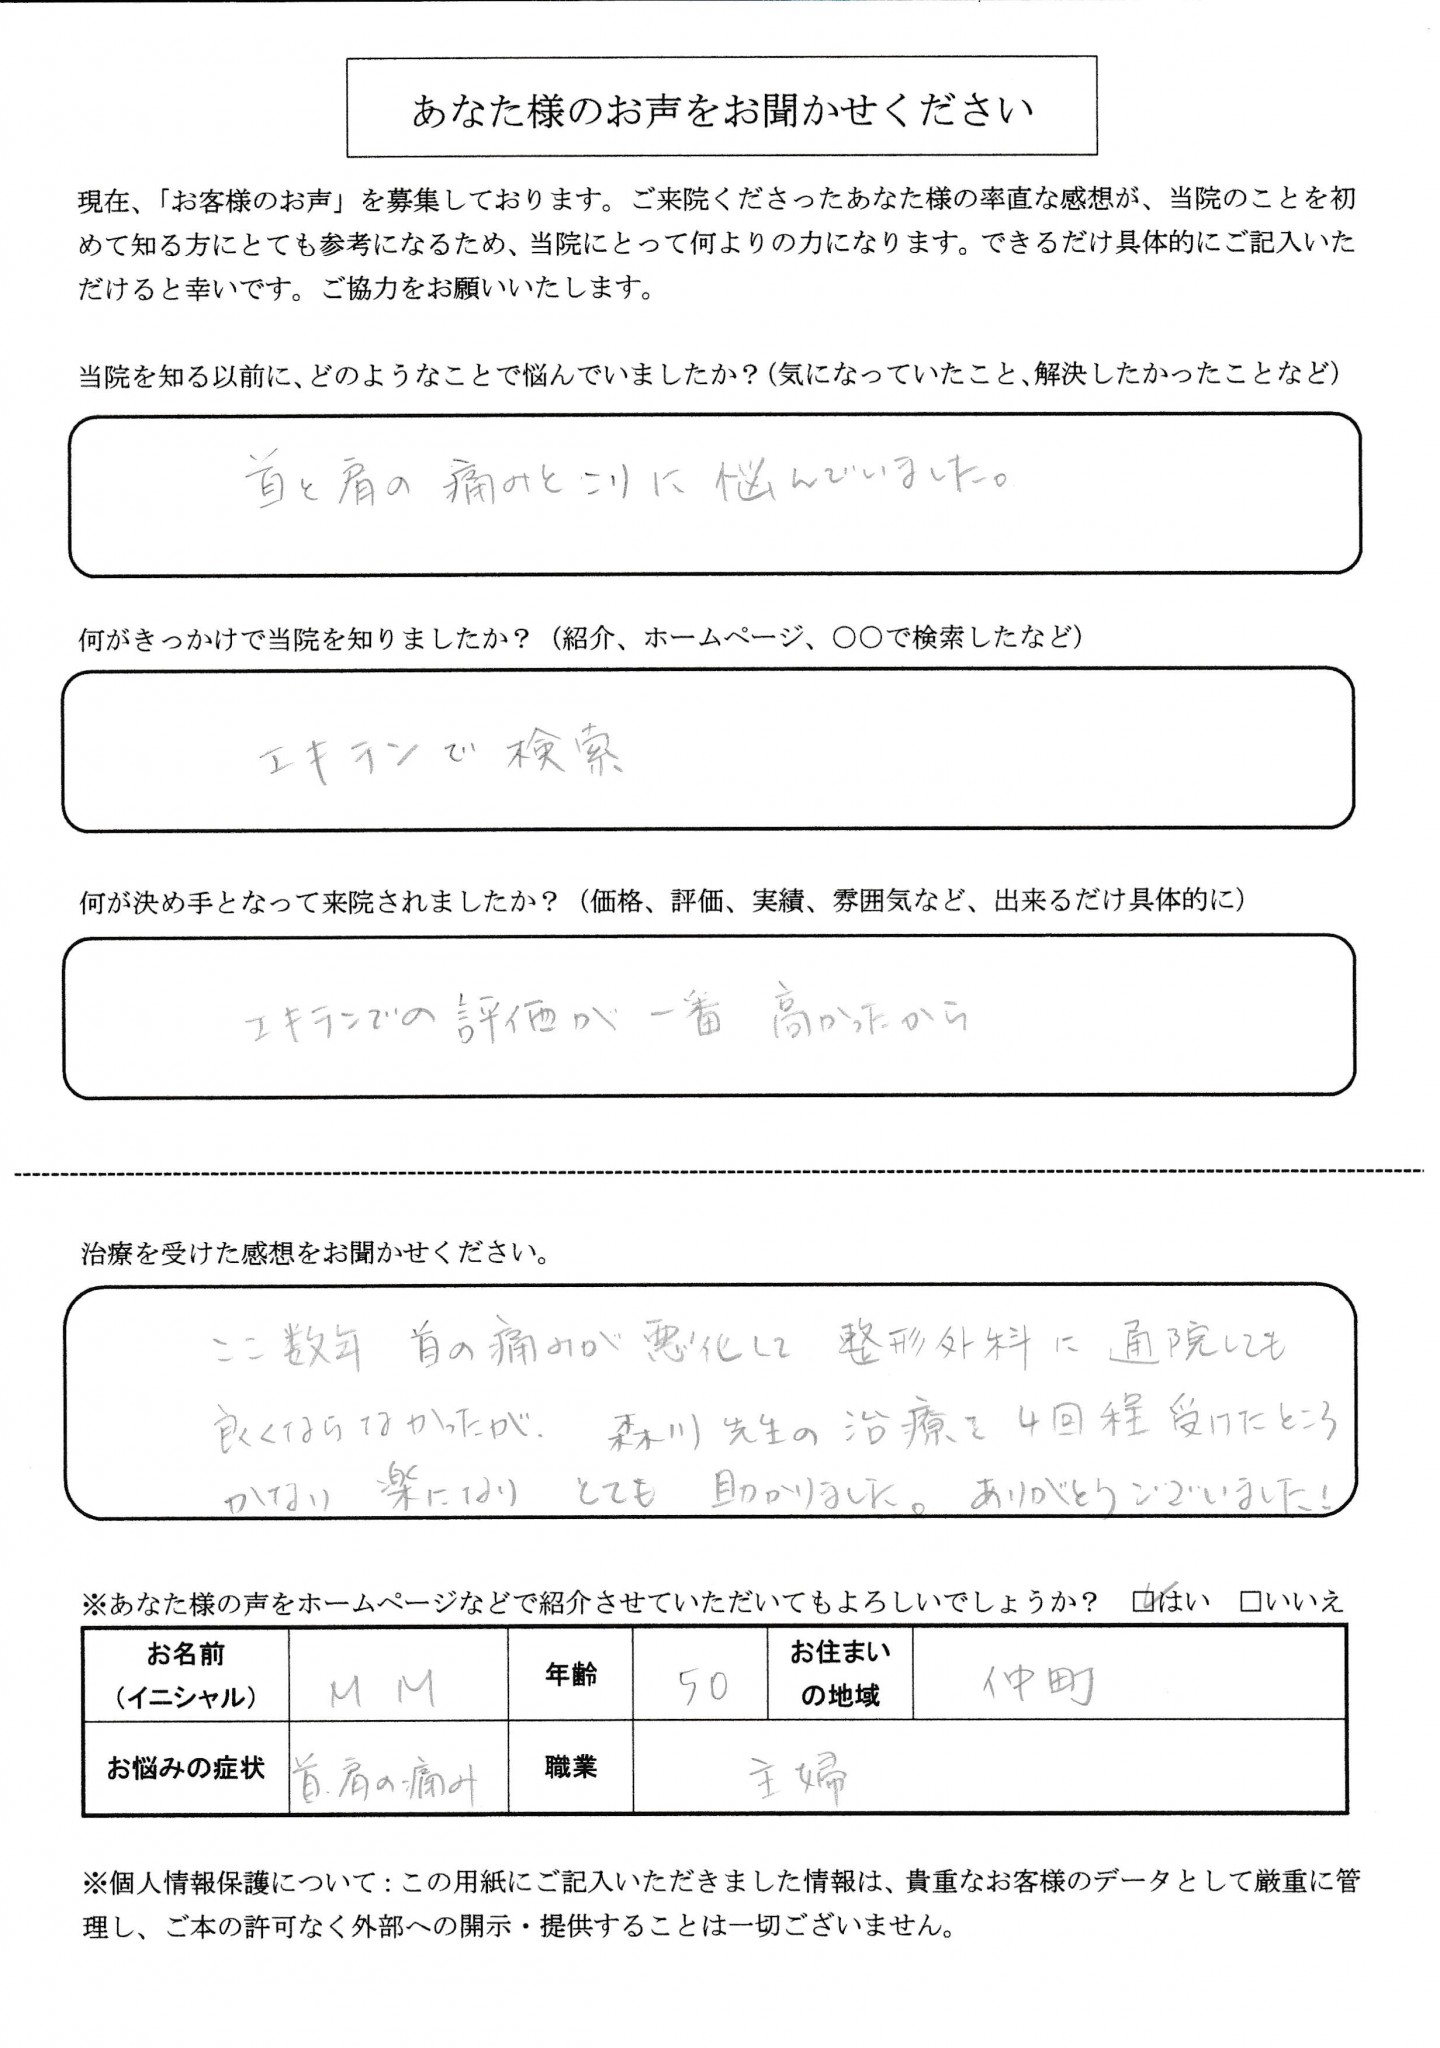 あなた様のお声をお聞かせください
現在、「お客様のお声」を募集しております。ご来院くださったあなた様の率直な感想が、当院のことを初
めて知る方にとても参考になるため、当院にとって何よりの力になります。できるだけ具体的にご記入いた
だけると幸いです。ご協力をお願いいたします。
当院を知る以前に、どのようなことで悩んでいましたか？（気になっていたこと、解決したかったことなど）
首と肩の痛みとこりに悩んでいました。
何がきっかけで当院を知りましたか？（紹介、ホームページ、〇〇で検索したなど）
エキテンで検索
何が決め手となって来院されましたか？（価格、評価、実績、雰囲気など、出来るだけ具体的に）
エキテンでの評価が一番高かったから
治療を受けた感想をお聞かせください。
ここ数年 首の痛みが悪化して 整形外科に通院しても
良くならなかったが、森川先生の治療を4回程受けたところ
かなり楽になり とても助かりました。ありがとうございました！
※あなた様の声をホームページなどで紹介させていただいてもよろしいでしょうか？ ☑はい □いいえ
お名前（イニシャル） M M 年齢 50 お住まいの地域 仲町
お悩みの症状 首.肩の痛み 職業 主婦
※個人情報保護について：この用紙にご記入いただきました情報は、貴重なお客様のデータとして厳重に管
理し、ご本の許可なく外部への開示・提供することは一切ございません。